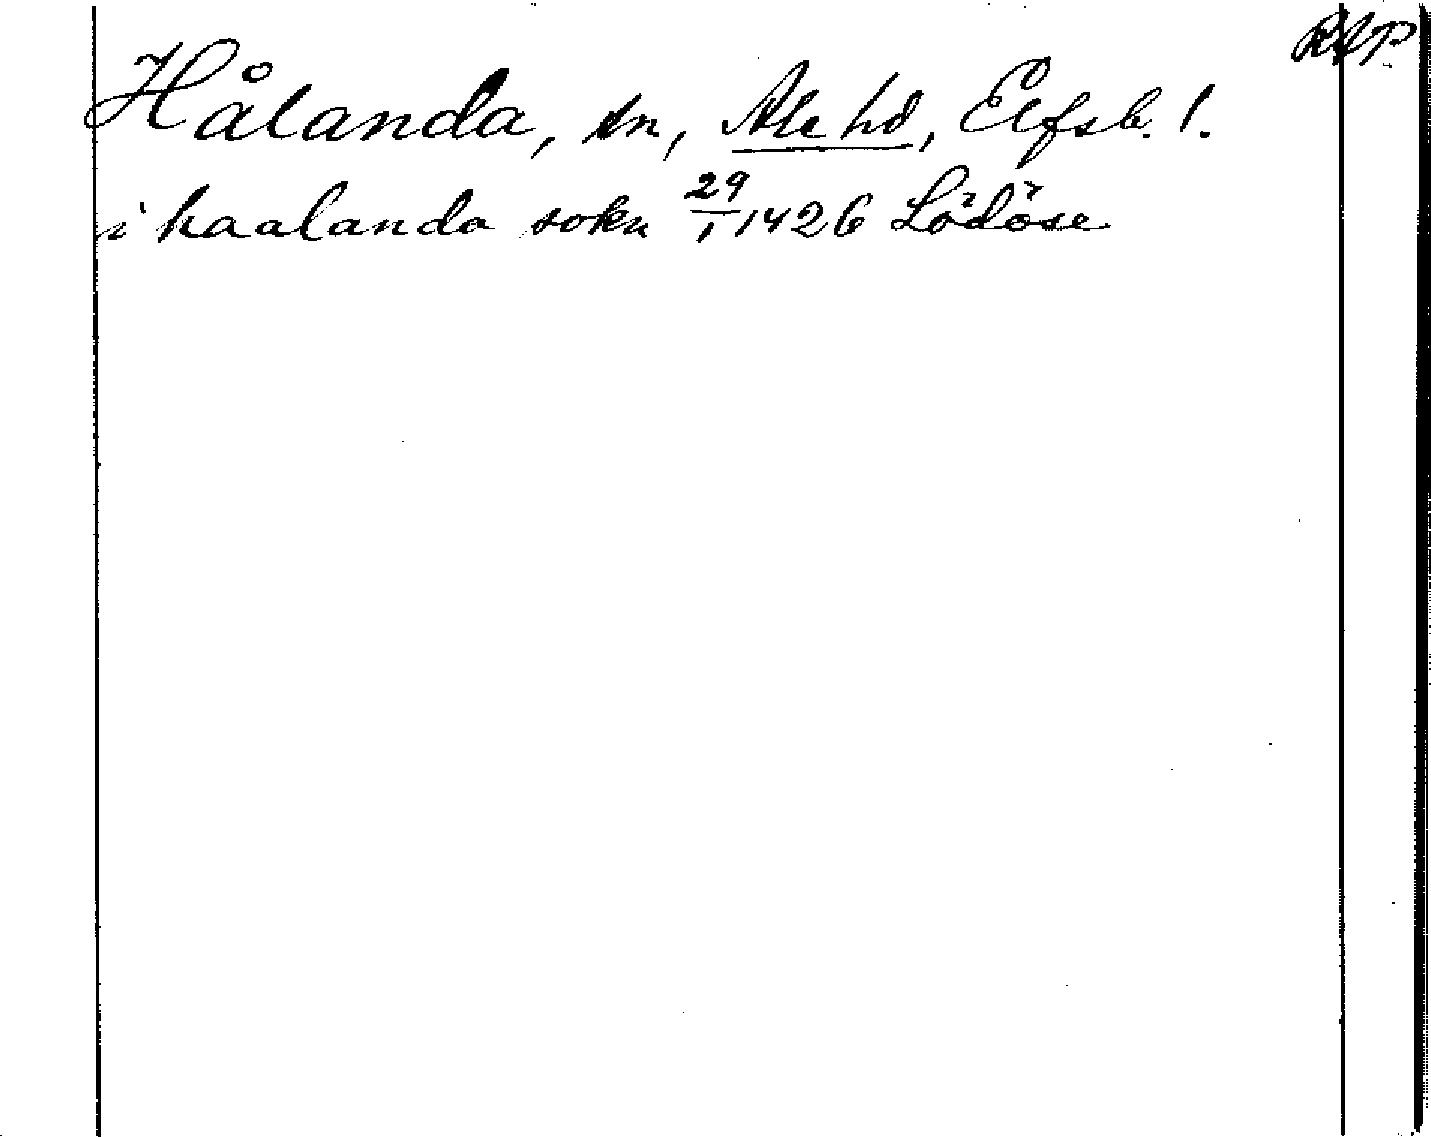 RAP
Hålanda, sn, Ale hd, Elfsb. l.
i haalanda sokn 29/1 1426 Lödöse